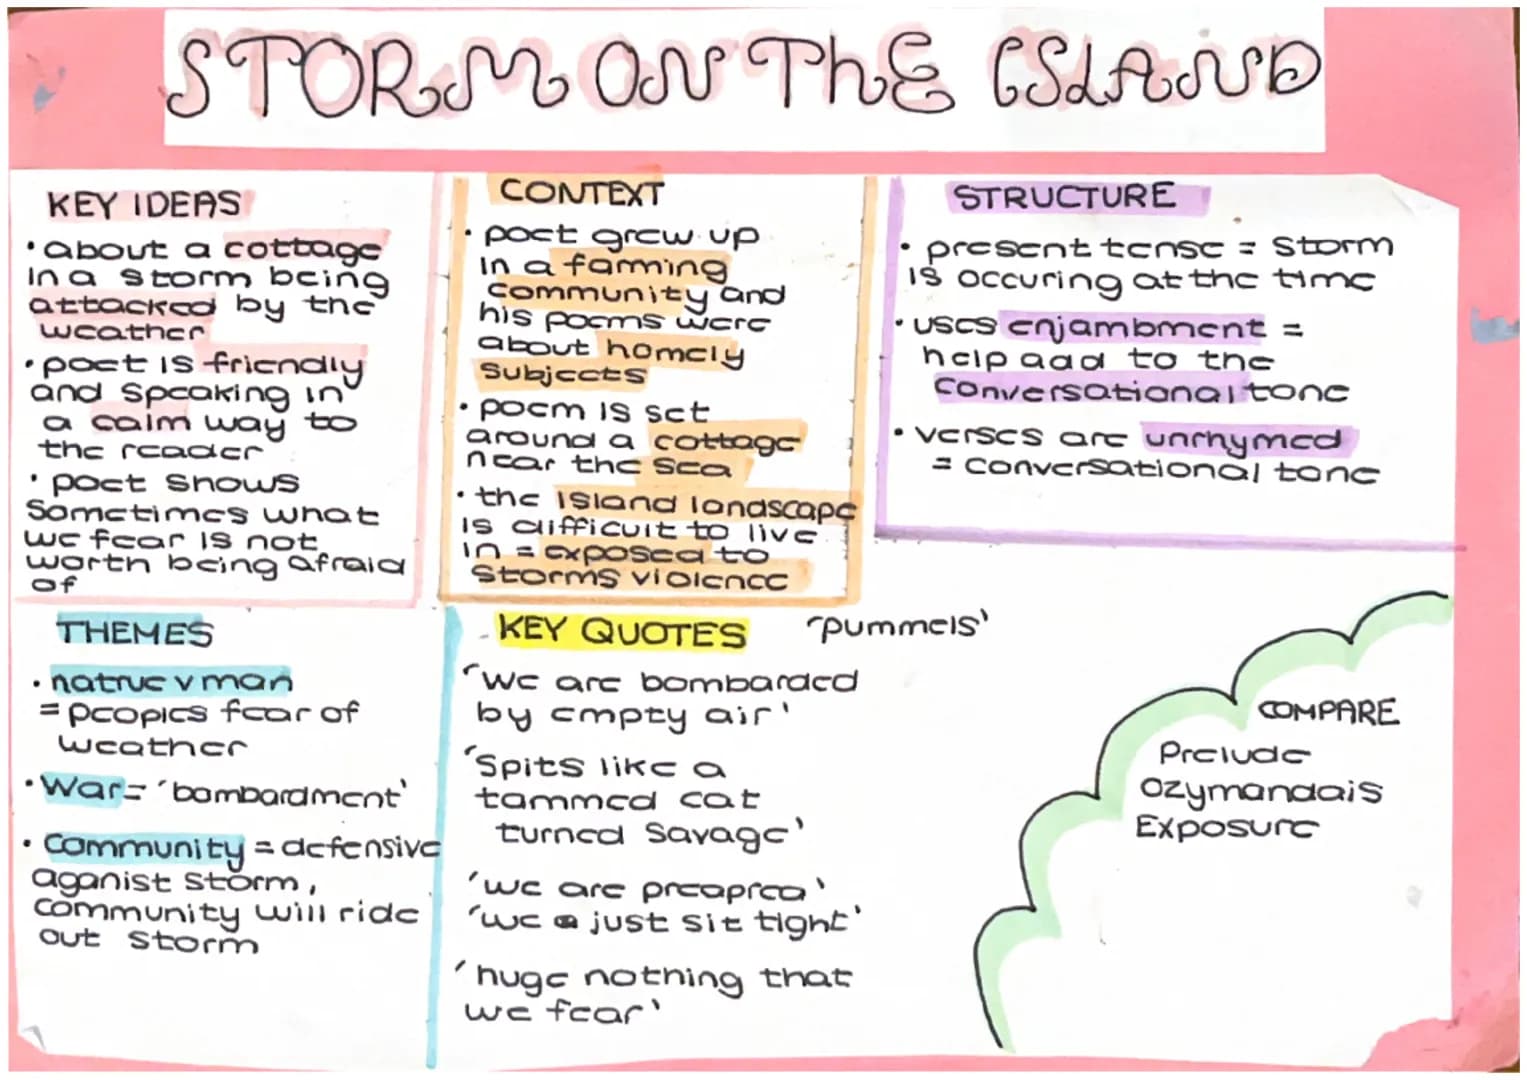 STORM ON ThE ISLAND
KEY IDEAS
• about a cottage
in a storm being
attacked by the
weather
• poet is friendly
and speaking in
a calm way to
the reader
• poet shows
Sometimes what
we fear is not
worth being afraid
of
CONTEXT
• poet grew up
in a farming
community and
his poems were
about homely
subjects
• poem is set
around a cottage
near the sea
• the island landscape
is difficult to live
in = exposed to
storms violence
STRUCTURE
• present tense = storm
is occuring at the time
• uses enjambment =
help add to the
conversational tone
• verses are unrhymed
= conversational tone
THEMES
• natrue v man
= peoples fear of
weather
• War = 'bombardment'
• Community = defensive
aganist storm,
community will ride
out storm
KEY QUOTES 'pummels'
'We are bombarded
by empty air'
'Spits like a
tammed cat
turned Savage'
'we are preapred'
'we just sit tight'
'huge nothing that
we fear'
COMPARE
Prelude
Ozymandais
Exposure